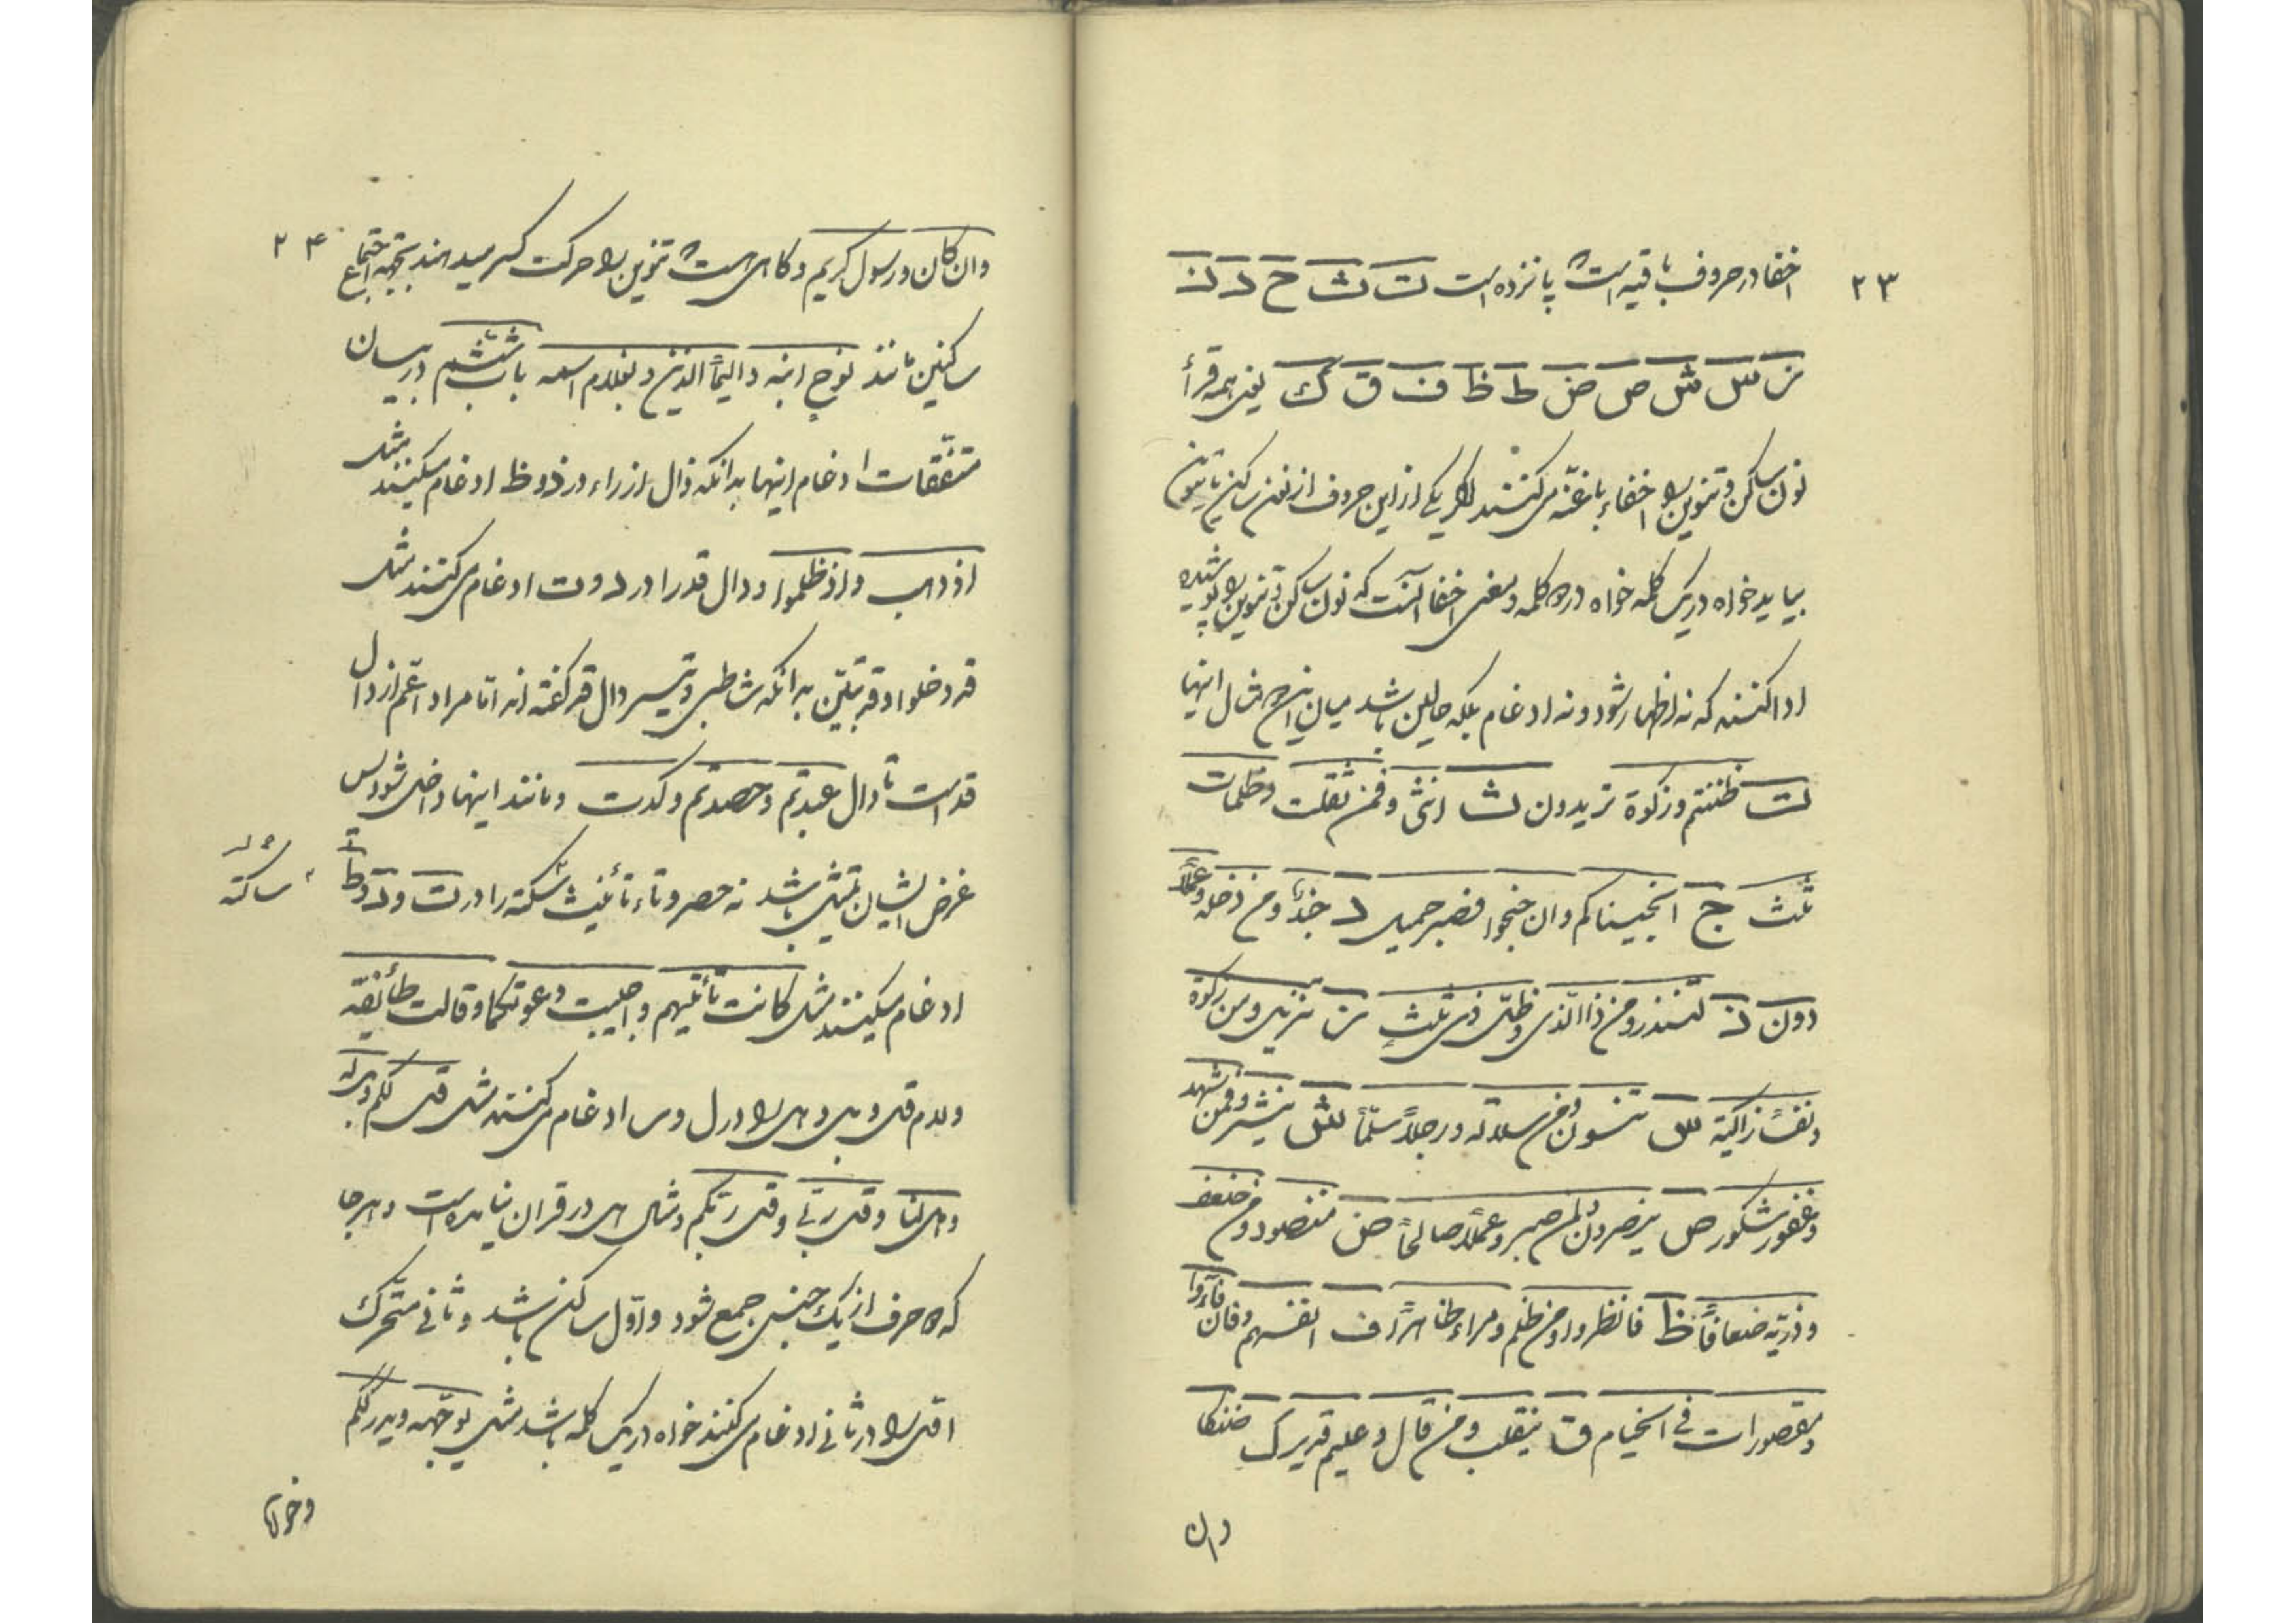 ۲۳
اخفا در حروف باقیه است و پانزده است ت ث ج د ذ
ز س ش ص ض ط ظ ف ق ک یعنی همه قرأ
نون ساکن و تنوین را اخفاء با غنّه می‌کنند اگر یکی از این حروف از نون ساکن یا تنوین
بیاید خواه در یک کلمه خواه در دو کلمه و معنی اخفا آنست که نون ساکن و تنوین را پوشیده
ادا کنند که نه اظهار شود و نه ادغام بلکه حالتین باشد میان این دو مثال اینها
ت ظننتم و زکوة تریدون ث انثی و فمن ثقلت و ظلمات
ثلث ج انجیناکم و ان جنحوا فصبر جمیل د جندا و من دخله و عملا
دون ذ لتنذر و من ذا الّذی و ظلّ ذی ثلث ز تنزیل و من زکوة
و نفسًا زاکیة س تنسون و من سلالة و رجلاً سلمًا ش ینشر و فمن شهد
و غفور شکور ص ینصرون و لمن صبر و عملاً صالحًا ض منضود و من ضعف
و ذریّة ضعافًا ظ فانظروا و من ظلم و مراء ظاهرًا ف انفسهم و فان فاءوا
و مقصورات فی الخیام ق ینقلب و من قال و علیم قدیر ک ضنکا
وان
۲۴
وان کان و رسول کریم و کاهی هست که تنوین را حرکت کسر میدهند بجهه اجتماع
ساکنین مانند نوح ابنه و الیمًا الذین و بغلام اسمه باب ششم در بیان
متفقات ادغام اینها بدانکه ذال اذ را در ذ و ظ ادغام میکنند مثل
اذ ذهب و اذ ظلموا و دال قد را در د و ت ادغام می‌کنند مثل
قد دخلوا و قد تبیّن بدانکه شاطبی و تیسیر دال قد گفته اند امّا مراد اعّم از دال
قد است تا دال عبدتم و حصدتم و کدت و مانند اینها داخل شود پس
غرض ایشان تمثیل باشد نه حصر و تاء تأنیث ساکنه را در ت و د و ط
ساکنه
ادغام میکنند مثل کانت تأتیهم و اجیبت دعوتکما و قالت طائفة
و لام قل و بل و هل را در ل و ر ادغام می‌کنند مثل قل لکم و بل له
و هل لنا و قل ربّی و قل ربّکم و مثال هل در قران نیامده است و هر جا
که دو حرف از یک جنس جمع شود و اوّل ساکن باشد و ثانی متحرک
اوّل را در ثانی ادغام می‌کنند خواه در یک کلمه باشد مثل یوجّهه و یدرککم
و خواه